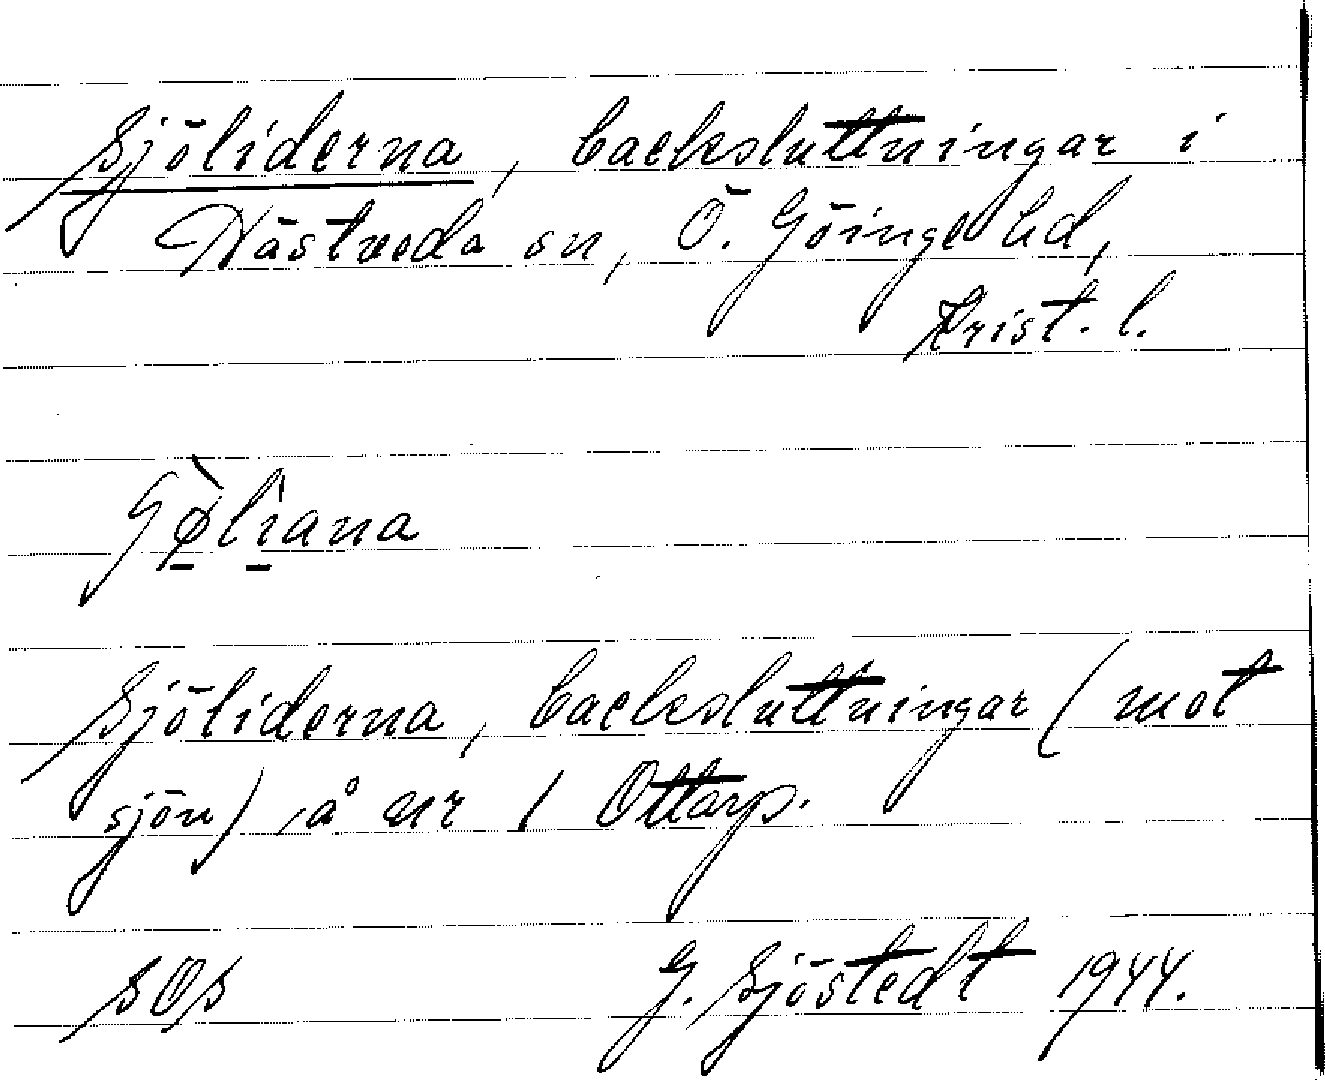 Sjöliderna, backsluttningar i
Hästveda sn, Ö. Göinge hd,
Krist. l.
Sjöliderna, backsluttningar (mot
sjön) å nr 1 Ottarp.
SOS G. Sjöstedt 1944.